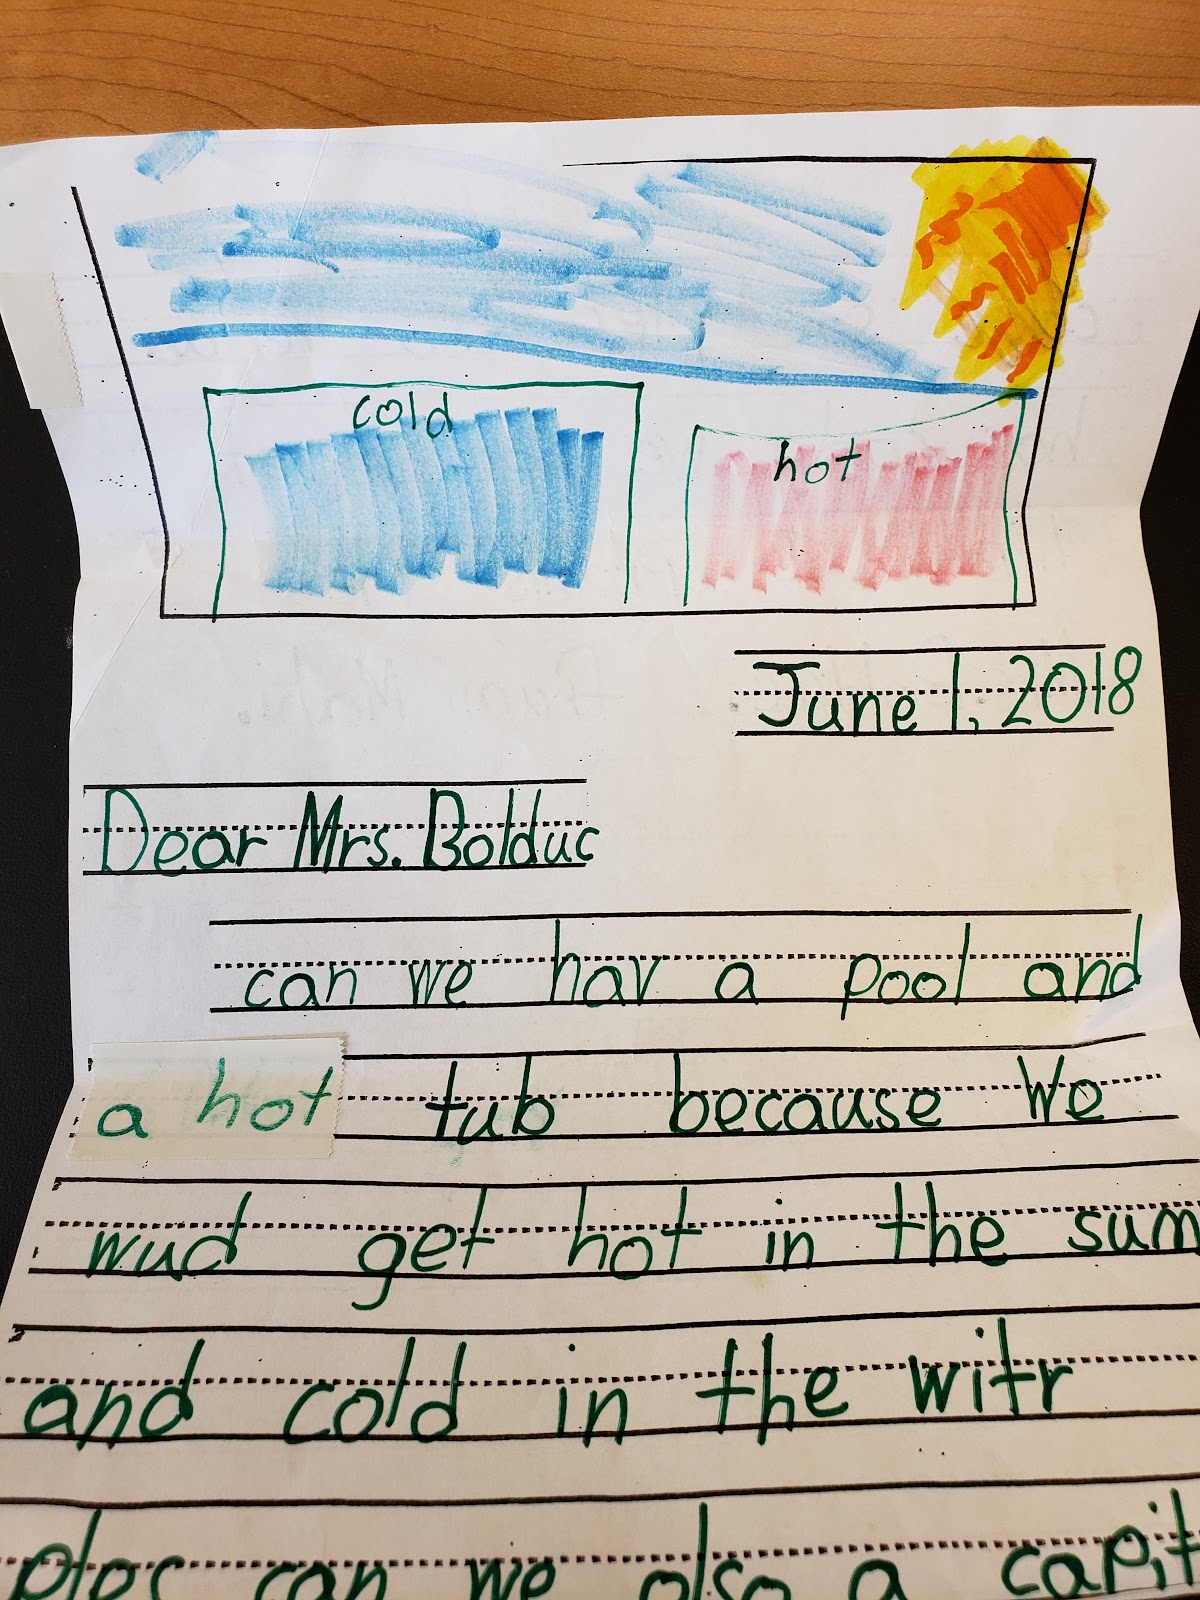 cold
hot
June 1, 2018
Dear Mrs. Bolduc
can we hav a pool and
a hot tub because We
wud get hot in the sum
and cold in the witr
can we also a